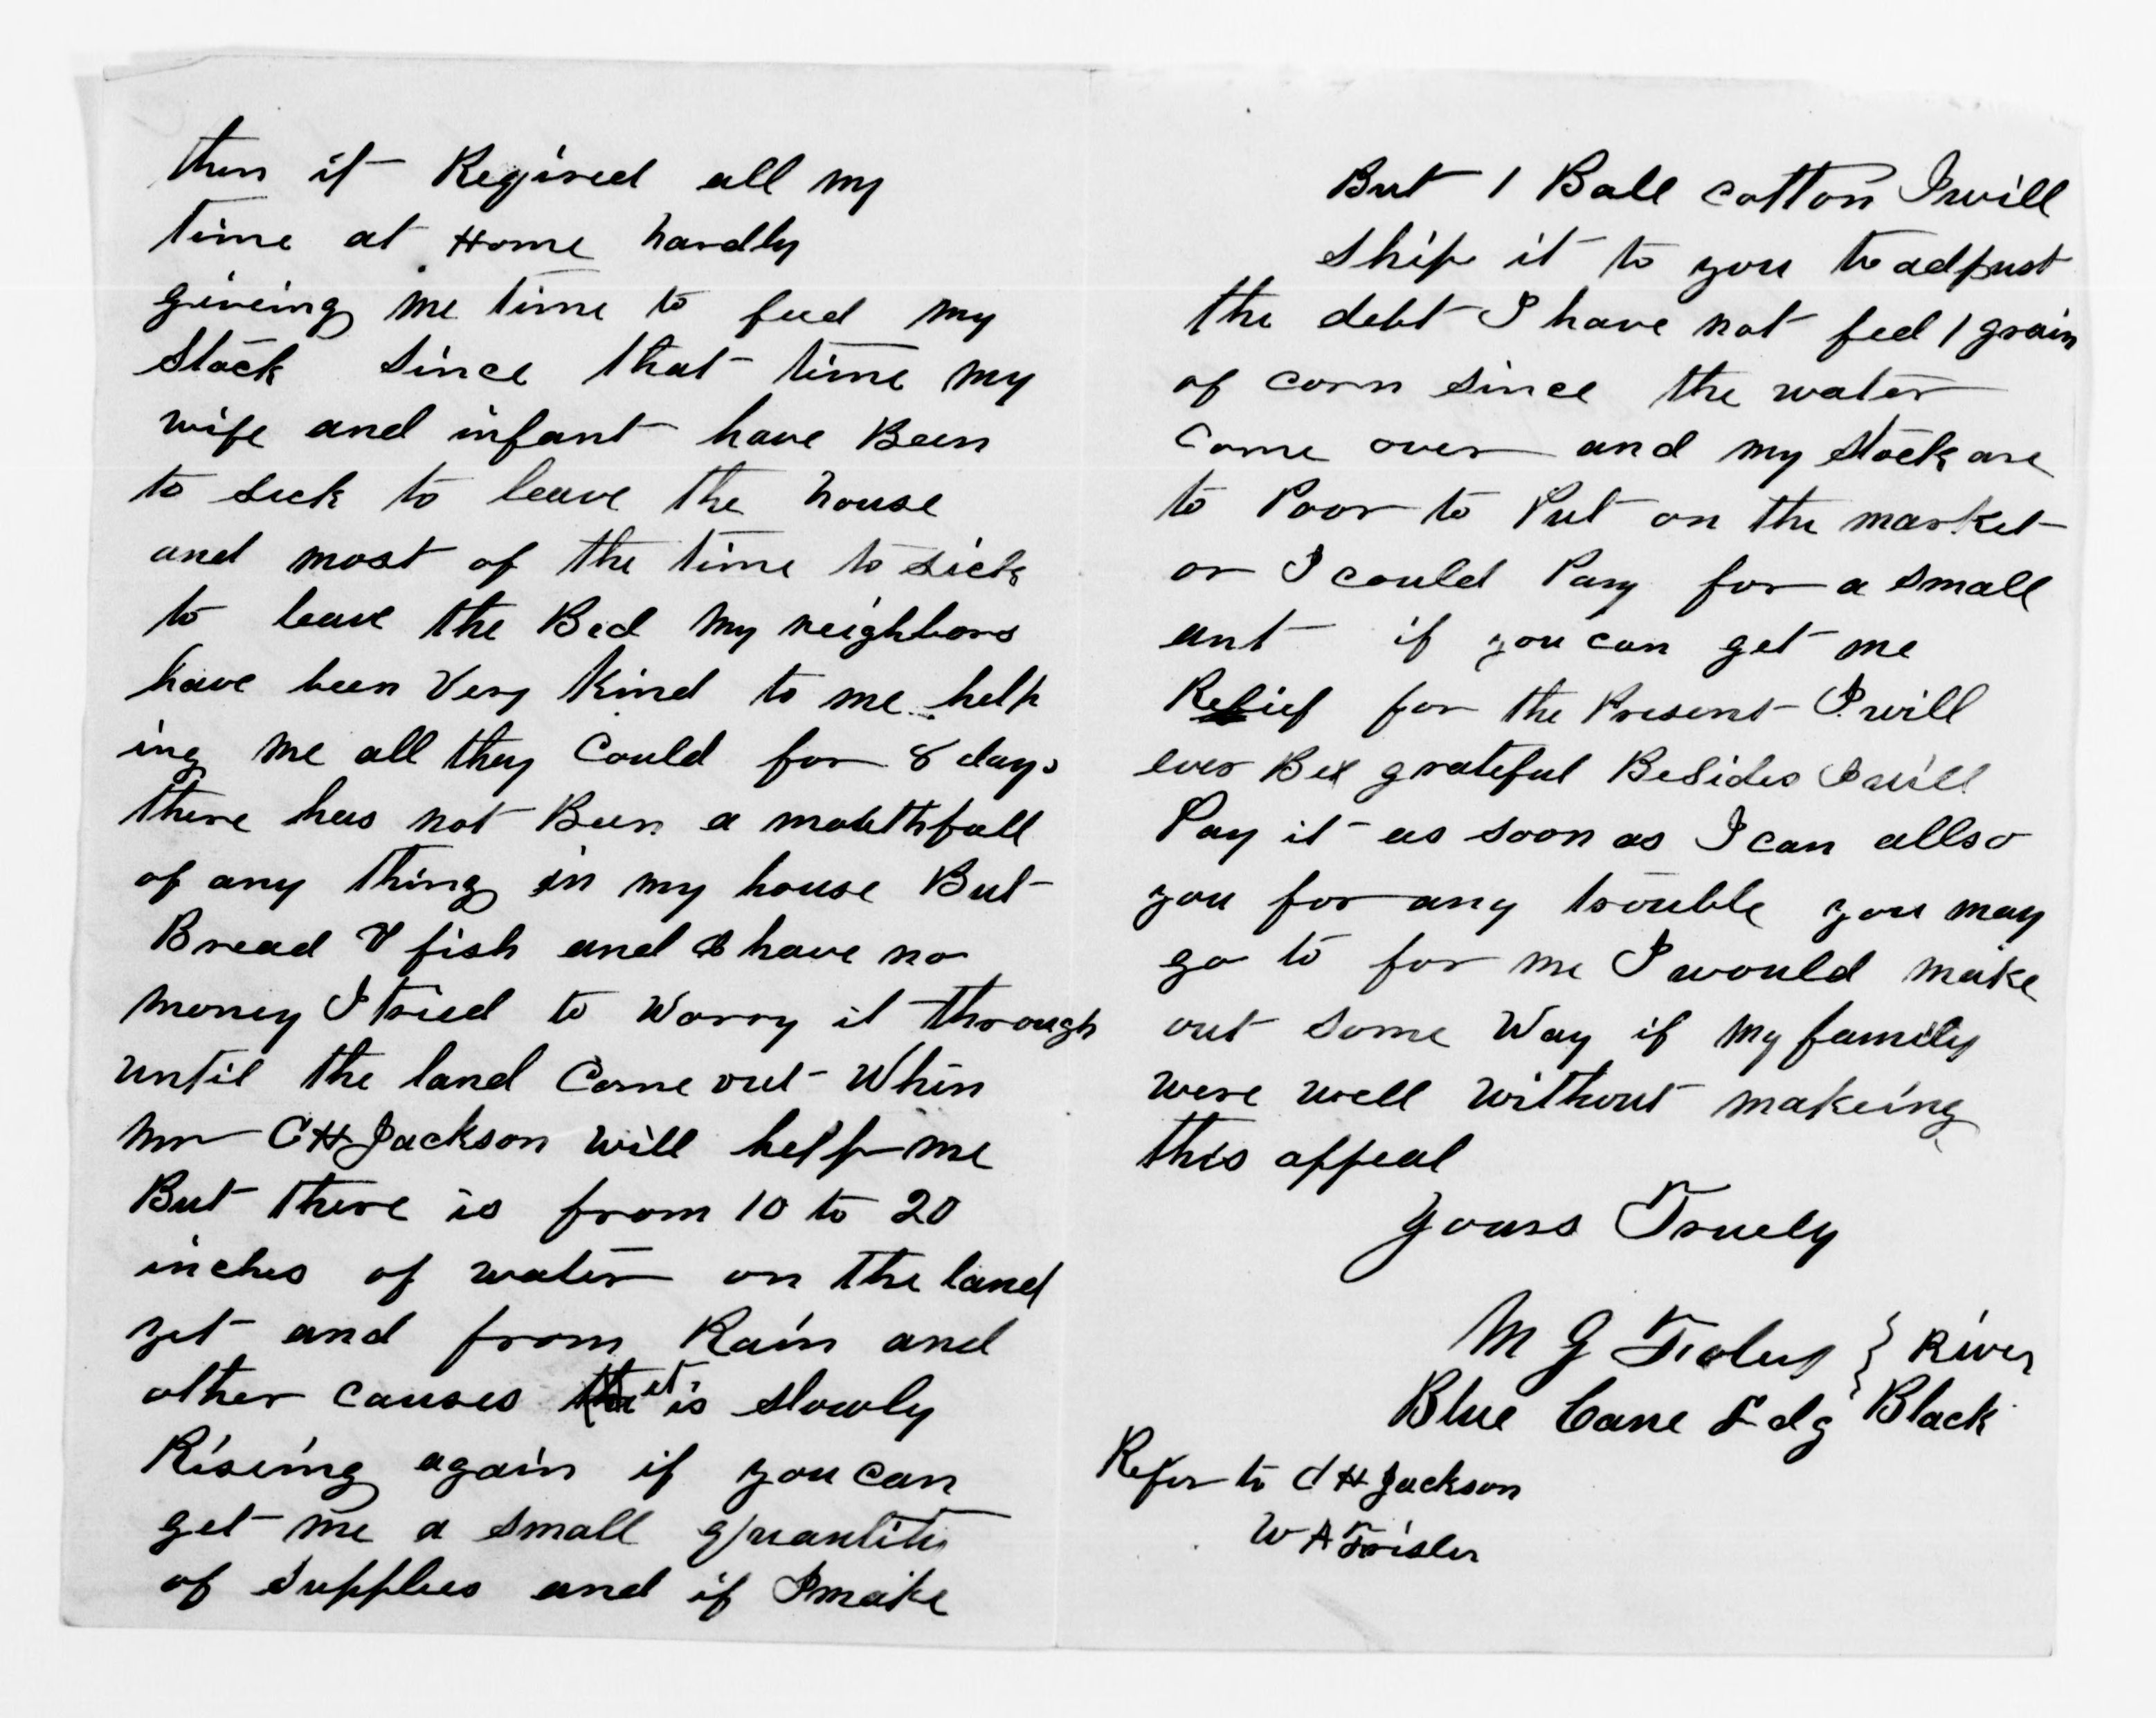 then it Reqired all my
time at Home hardly
giveing me time to feed my
Stock Since that time my
wife and infant have Been
to sick to leave the house
and most of the time to sick
to leave the Bed my neighbors
have been Very Kind to me help
ing me all they Could for 8 days
there has not Been a mouthfull
of any thing in my house But
Bread & fish and I have no
money I tried to Worry it through
until the land Come out When
Mr C H Jackson will help me
But there is from 10 to 20
inches of water on the land
yet and from Rain and
other causes it is slowly
Rising again if you can
get me a small quantity
of supplies and if I make
But 1 Bale cotton I will
ship it to you to adjust
the debt I have not feed 1 grain
of corn since the water
Come over and my stock are
to Poor to Put on the market
or I could Pay for a small
amt if you can get me
Relief for the Present I will
ever Be grateful BeSides I will
Pay it as soon as I can allso
you for any trouble you may
go to for me I would make
out some Way if my family
were well without makeing
this appeal
Yours Truely
M G } River
Blue Cane Ldg Black
Refer to C H Jackson
W A Trisler